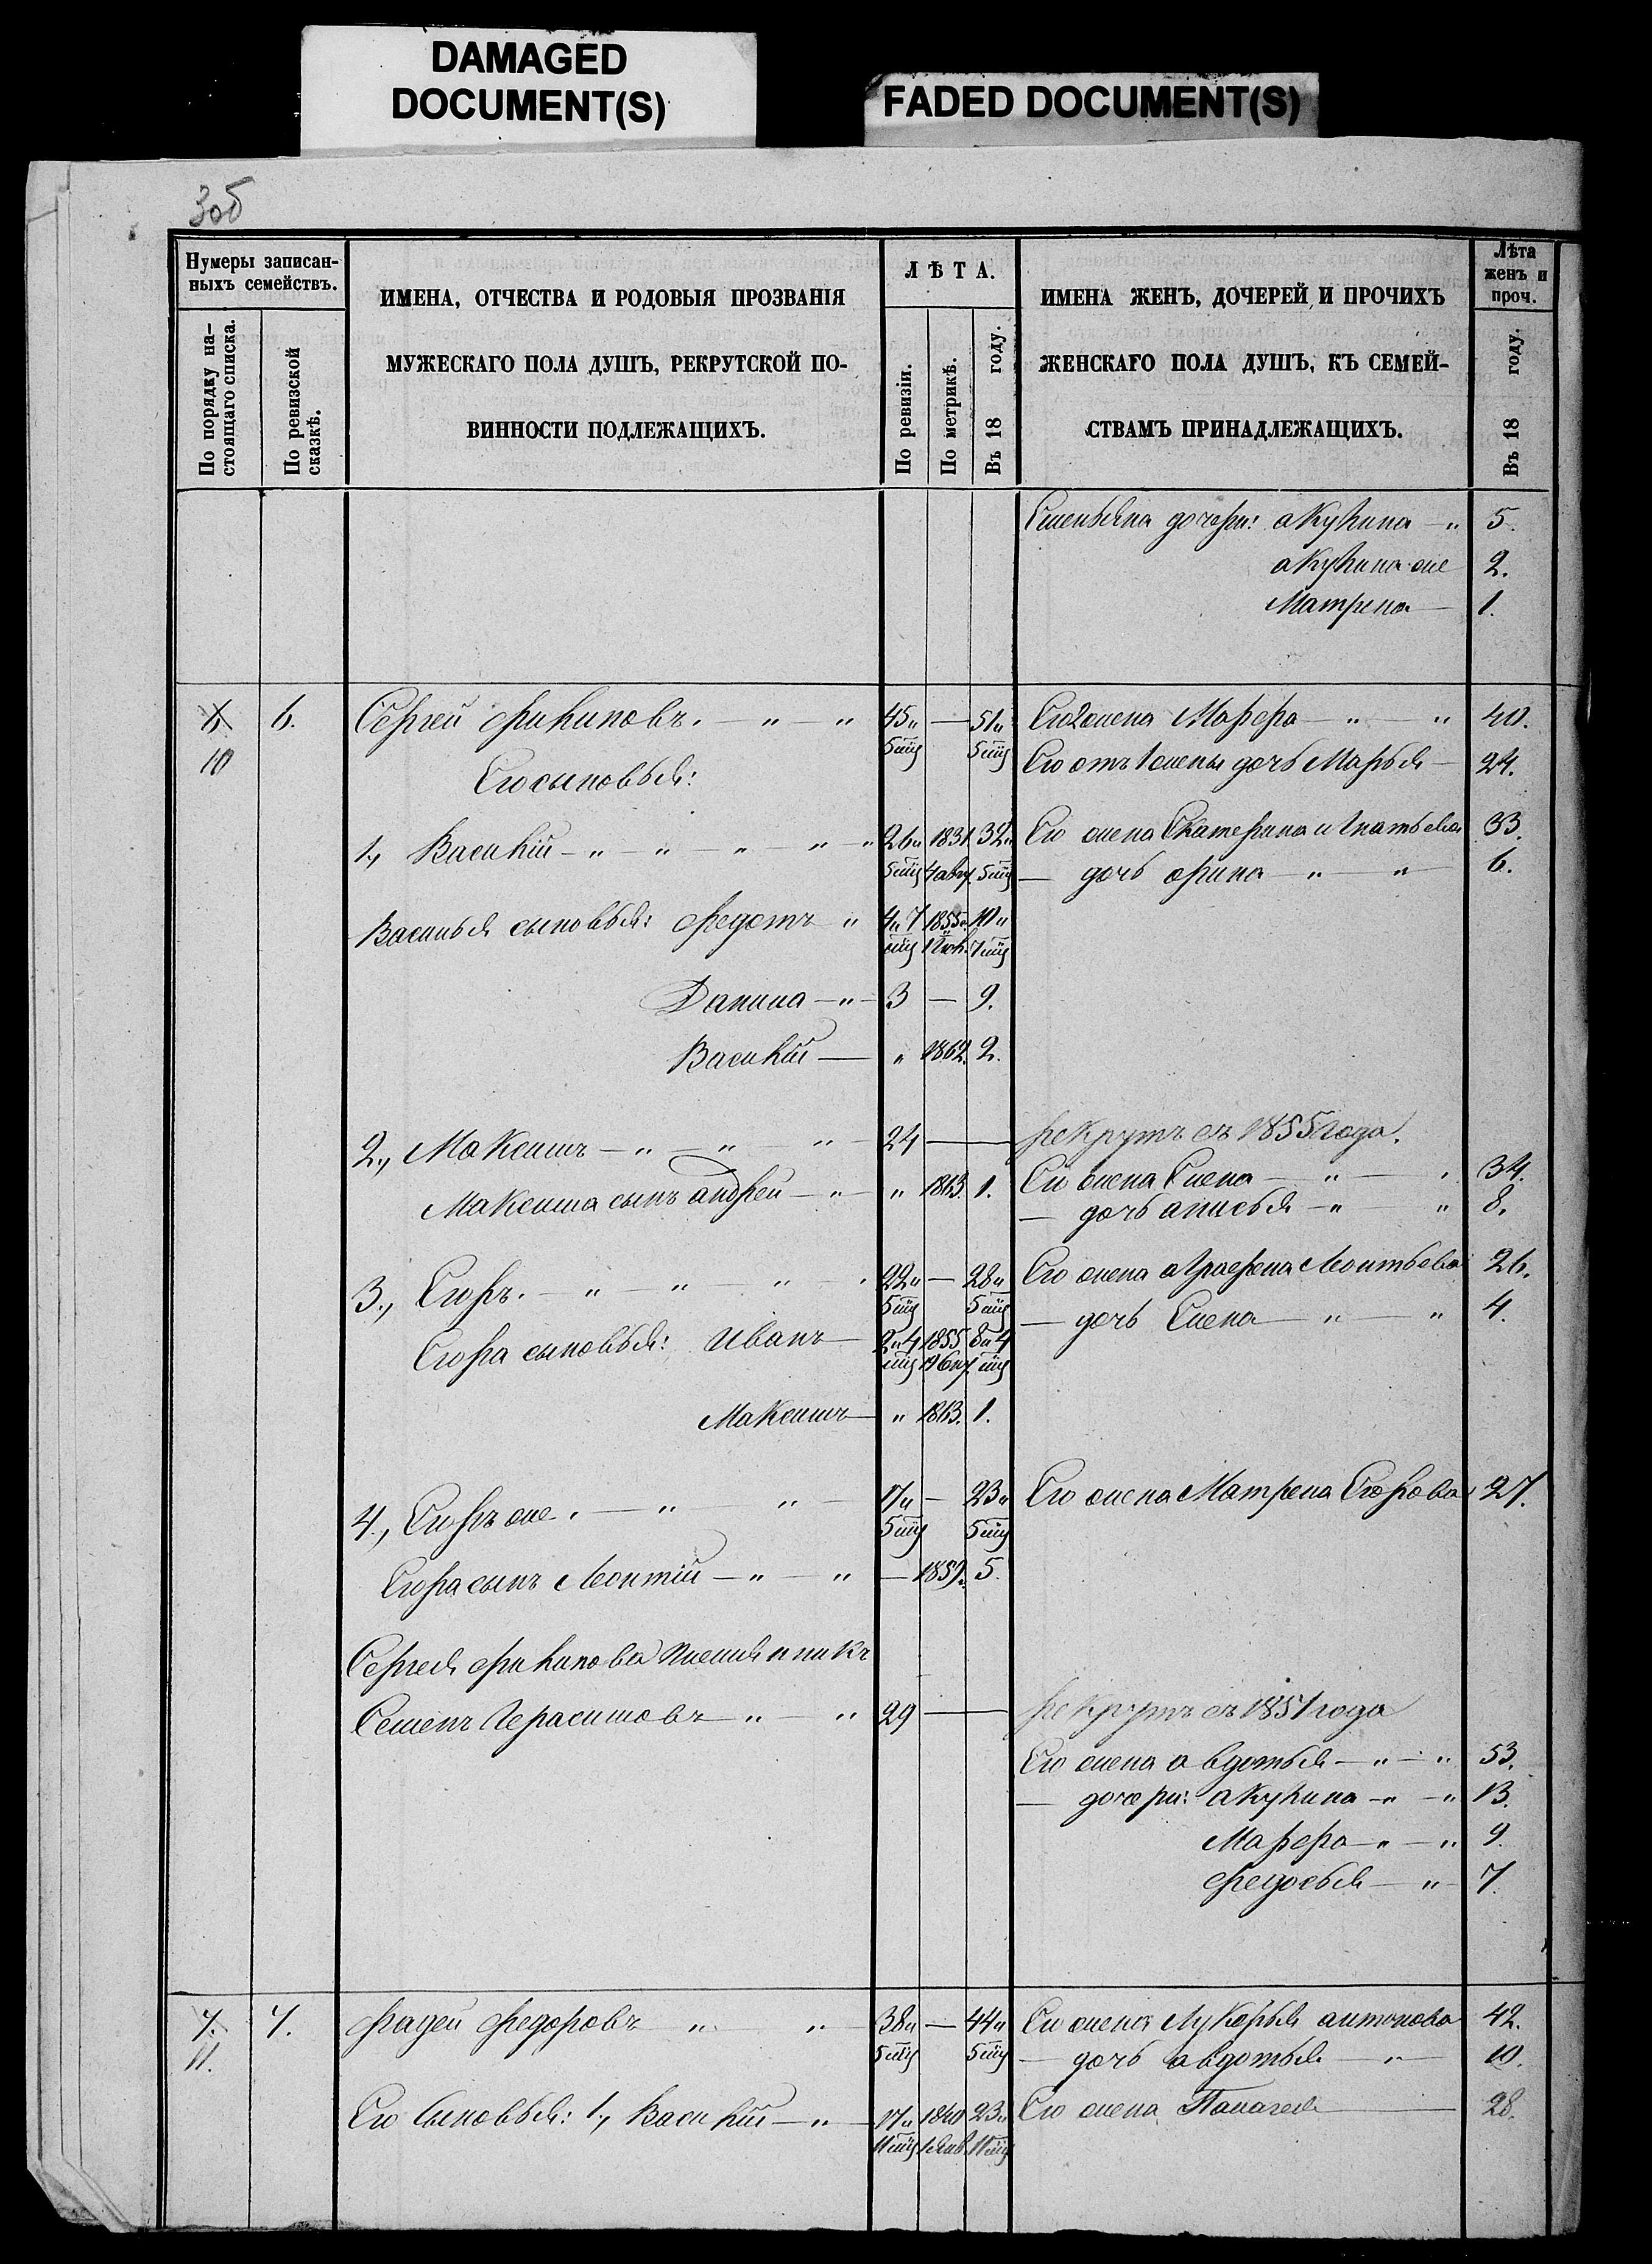 DAMAGED
DOCUMENT(S)
FADED DOCUMENT(S)
3об
Нумеры записан-
ныхъ семействъ.
По порядку на-
стоящаго списка.
По ревизской
сказкѣ.
ИМЕНА, ОТЧЕСТВА И РОДОВЫЯ ПРОЗВАНІЯ
МУЖЕСКАГО ПОЛА ДУШЪ, РЕКРУТСКОЙ ПО-
ВИННОСТИ ПОДЛЕЖАЩИХЪ.
ЛѢТА.
По ревизіи.
По метрикѣ.
Въ 18 году.
ИМЕНА ЖЕНЪ, ДОЧЕРЕЙ И ПРОЧИХЪ
ЖЕНСКАГО ПОЛА ДУШЪ, КЪ СЕМЕЙ-
СТВАМЪ ПРИНАДЛЕЖАЩИХЪ.
Лѣта
женъ и
проч.
Въ 18 году.
Емельяна дочери: акулина — " 5.
акулина же 2.
Матрена — 1.
6. 6. Сергей филиповъ. — " — " 45" — 51" Его 2 жена Марфа — " — " 40.
10 5 мц 5 мц Его отъ 1 жены дочь Марья — 24.
Его сыновья:
1, Василій — " — " — " — " — " 26" 1831. 32" Его жена Екатерина Игнатьева 33.
5 мц 4 авг. 5 мц — дочь орина — " — " 6.
Василья сыновья: федотъ " 4" 7 1855. 10"
мц 7 мц
Данила — " — 3 — 9.
Василій — " 1862. 2.
2, Максимъ — " — " — " — 24 — рекрутъ съ 1855 года.
Максима сынъ андрей — " — " 1863. 1. Его жена Елена — " — " 34.
— дочь анисья — " — " 8.
3, Егоръ. — " — " — " — " 22" — 28" Его жена аграфена Леонтьева 26.
5 мц 5 мц — дочь Елена — " — " 4.
Егора сыновья: Иванъ — 2" 4 1855 8" 4
мц мц
Максимъ — " 1863. 1.
4, Егоръ же. — " — " — 17" — 23" Его жена Матрена Егорова 27.
5 мц 5 мц
Егора сынъ Леонтій — " — " — 1859. 5.
Сергея филипова племянникъ
Семенъ Герасимовъ — " — " 29 — рекрутъ съ 1851 года
Его жена авдотья — " — " 53.
— дочери: акулина — " — " 13.
Марфа — " — " 9.
федосья — " — 7.
7. 7. фадей федоровъ " — " — 38" — 44" Его жена Лукерья антонова 42.
11. 5 мц 5 мц — дочь авдотья — " — 10.
Его сыновья: 1, Василій — " — 17" 1840 23" Его жена Палагея — 28.
11 мц 1 Янв. 11 мц